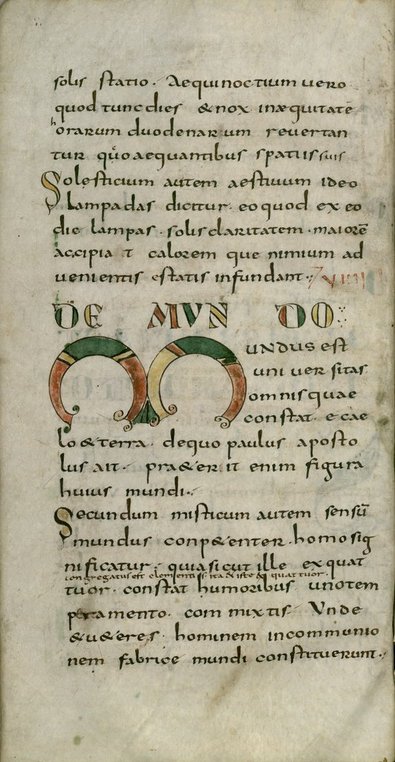 solis statio. Aequinoctium vero
quod tunc dies & nox in aequitatē
horarum duodenarum revertan
tur quo aequantibus spatiis suis
Solesticium autem aestivum ideo
lampadas dicitur. eo quod ex eo
die lampas. solis claritatem. maiorē
accipiat calorem que nimium ad
venientis estatis infundant. XVIIII
DE MVNDO
MUNDUS EST
universitas
omnis quae
constat. e cae
lo & terra. de quo paulus aposto
lus ait. praeterit enim figura
huius mundi.
Secundum misticum autem sensū
mundus conp&enter. homo sig
nificatur. quia sicut ille ex quat
congregatus est elementis ita & iste quattuor
tuor. constat humoribus uno tem
peramento. commixtis. Unde
& veteres. hominem in communio
nem fabrice mundi constituerunt.